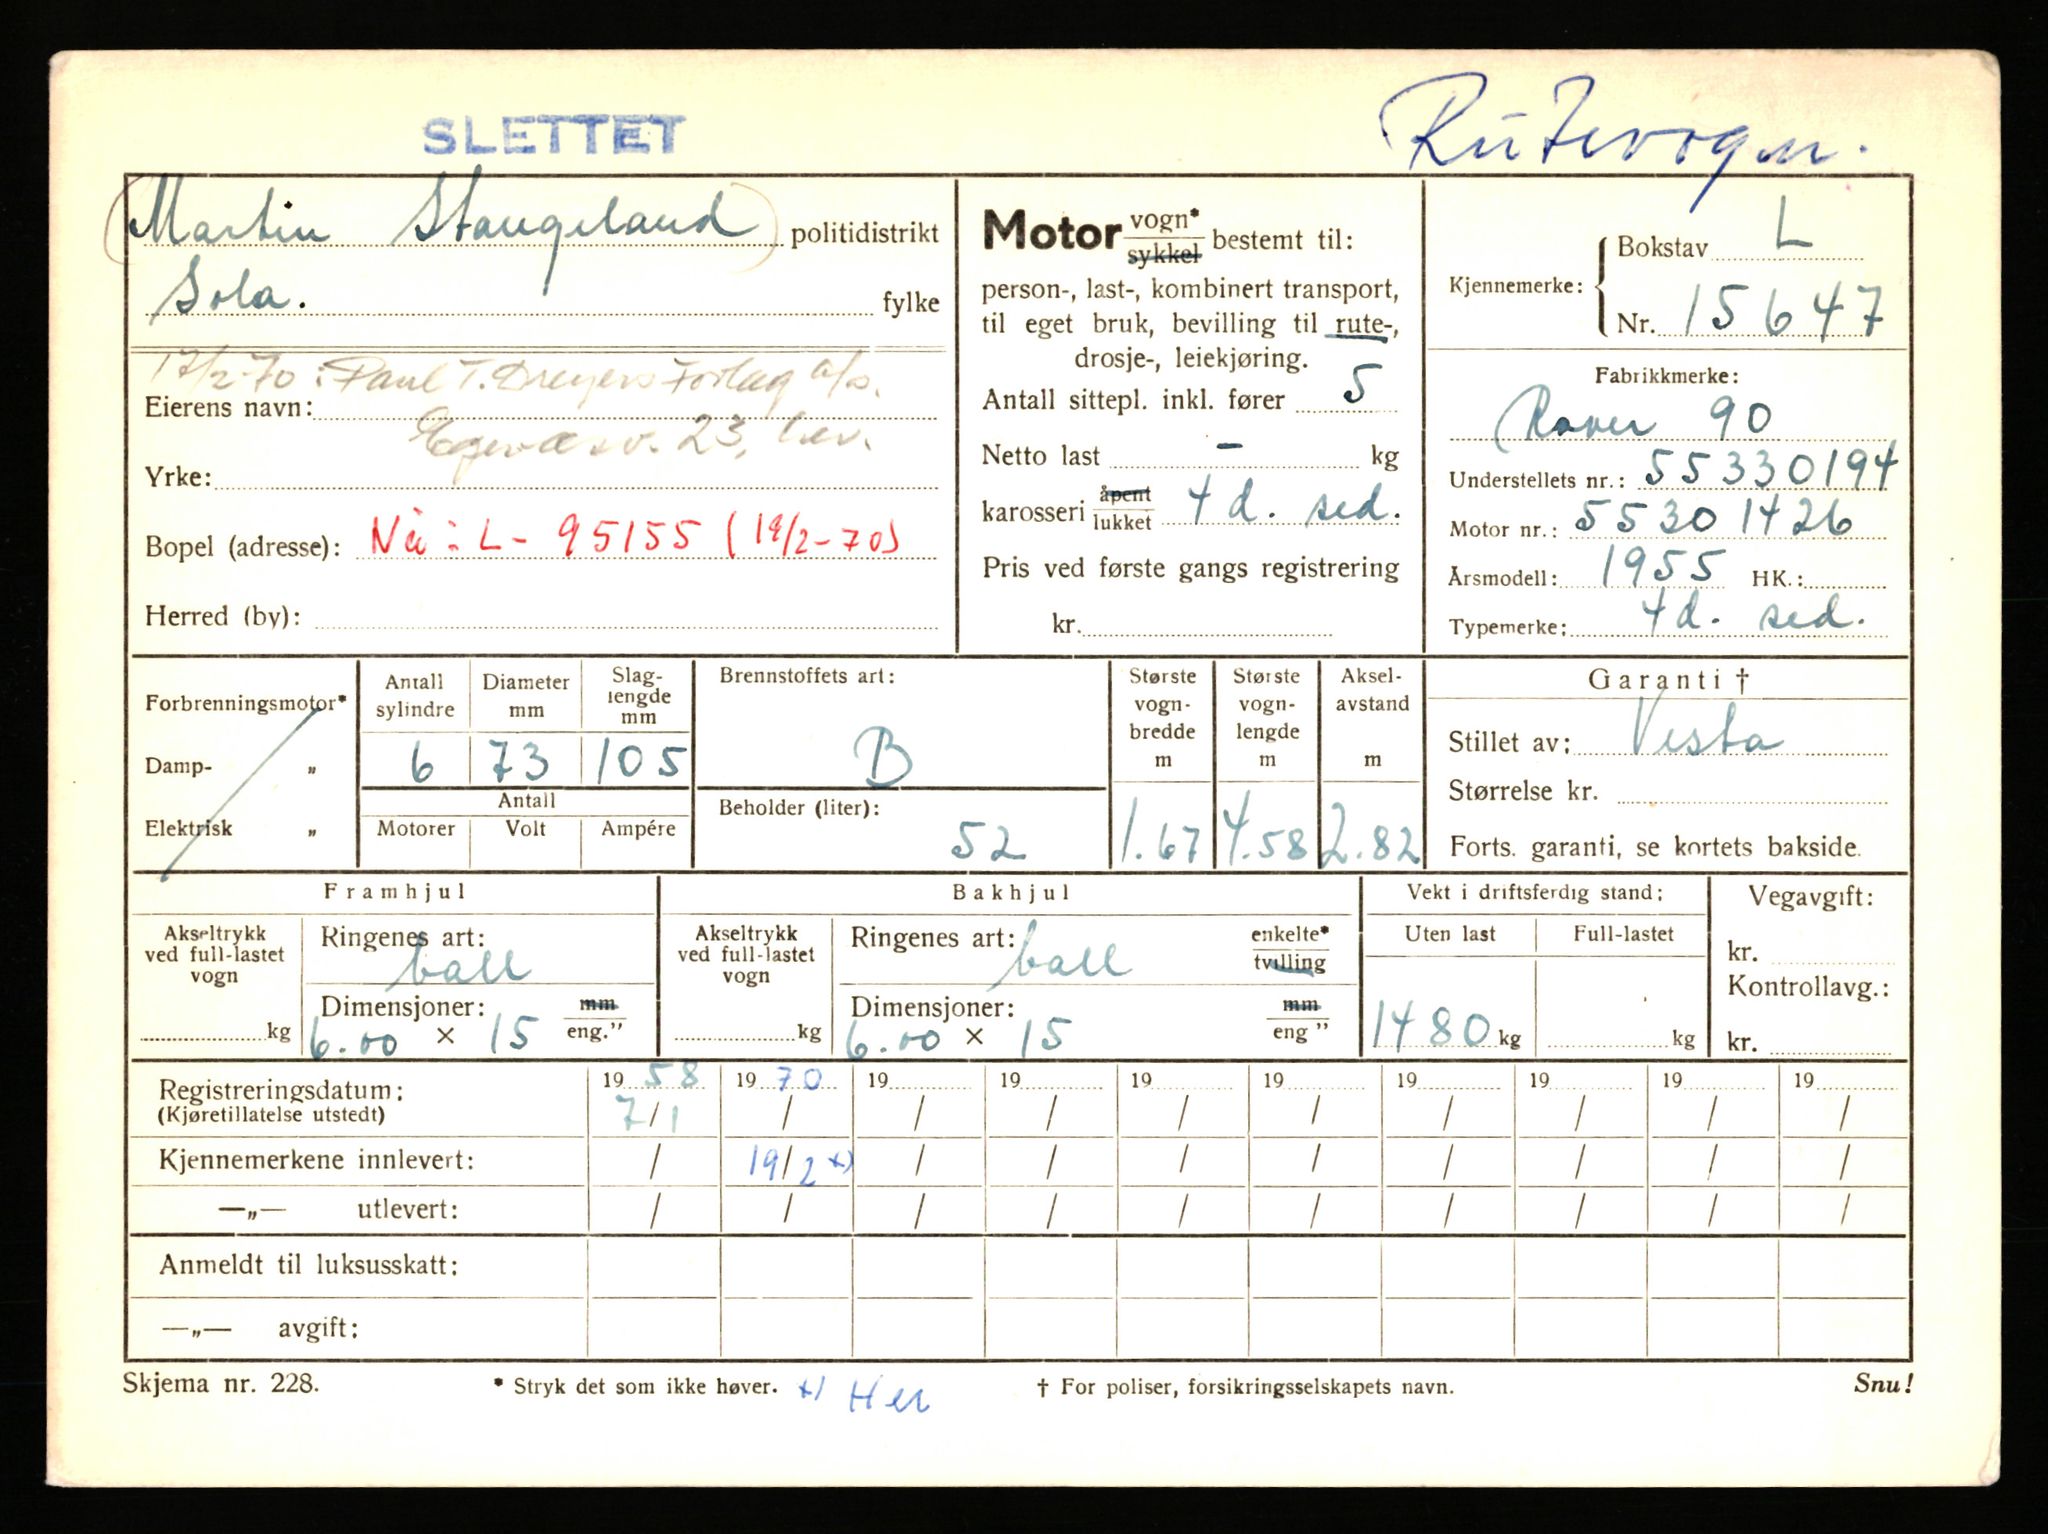 SLETTET
Rutevogn.
Martin Stangeland politidistrikt
Sola. fylke
17/2-70: Paul T. Dreyers Forlag a/s.
Eierens navn:
23,
Yrke:
Bopel (adresse): Nå: L- 95155 (19/2-70)
Herred (by):
Motor vogn* / sykkel bestemt til:
person-, last-, kombinert transport,
til eget bruk, bevilling til rute-,
drosje-, leiekjøring.
Antall sittepl. inkl. fører 5
Netto last – kg
karosseri åpent / lukket 4 d. sed.
Pris ved første gangs registrering
kr.
Kjennemerke: Bokstav L
Nr. 15647
Fabrikkmerke:
Rover 90
Understellets nr.: 55330194
Motor nr.: 55301426
Årsmodell: 1955 HK.:
Typemerke: 4d. sed.
Forbrenningsmotor*
Damp- „
Elektrisk „
Antall sylindre 6
Diameter mm 73
Slaglengde mm 105
Antall
Motorer Volt Ampére
Brennstoffets art:
B
Beholder (liter):
52
Største vognbredde m 1.67
Største vognlengde m 4.58
Akselavstand m 2.82
Garanti †
Stillet av: Vesta
Størrelse kr.
Forts. garanti, se kortets bakside.
Framhjul
Akseltrykk ved full-lastet vogn
kg
Ringenes art:
ball
Dimensjoner: mm / eng.”
6.00 × 15
Bakhjul
Akseltrykk ved full-lastet vogn
kg
Ringenes art: enkelte* / tvilling
ball
Dimensjoner: mm / eng ”
6.00 × 15
Vekt i driftsferdig stand:
Uten last Full-lastet
1480 kg kg
Vegavgift:
kr.
Kontrollavg.:
kr.
Registreringsdatum: 19 58 19 70 19 19 19 19 19 19 19 19
(Kjøretillatelse utstedt) 7/1 / / / / / / / / /
Kjennemerkene innlevert: / 19/2 x) / / / / / / / /
—„— utlevert: / / / / / / / / / /
Anmeldt til luksusskatt:
—„— avgift:
Skjema nr. 228. * Stryk det som ikke høver. x) Her † For poliser, forsikringsselskapets navn. Snu!